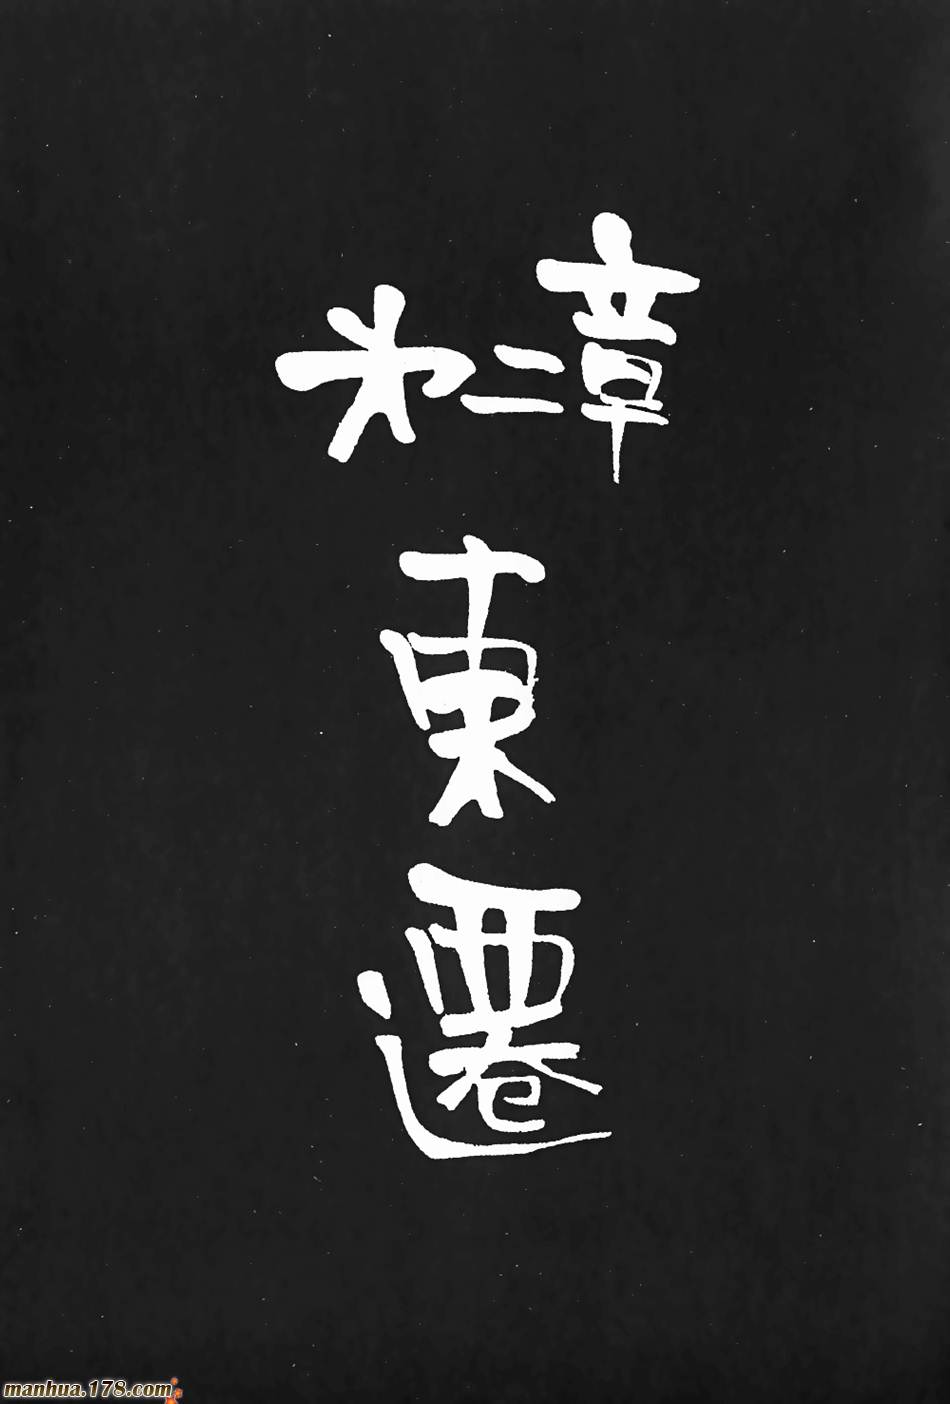 第二章
東遷
manhua.178.com